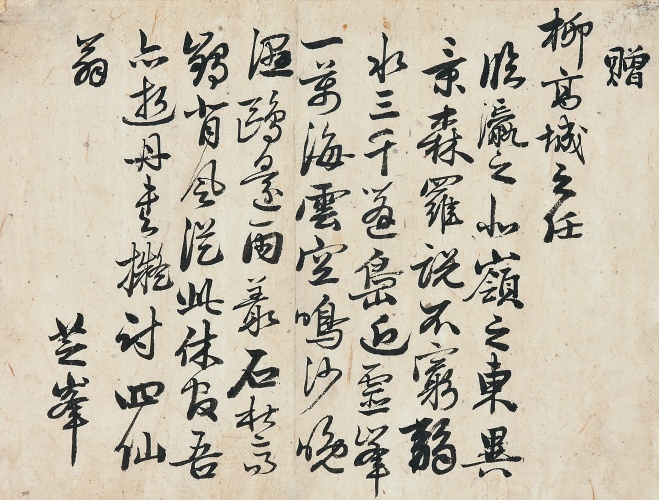 贈
柳高城之任
臨瀛之北嶺之東異
景森羅說不窮弱
水三千蓬島近靈峯
一萬海雲空鳴沙晚
濕鷗邊雨叢石秋高
鶴背風從此休官吾
亦逝丹書擬討四仙
翁
芝峯